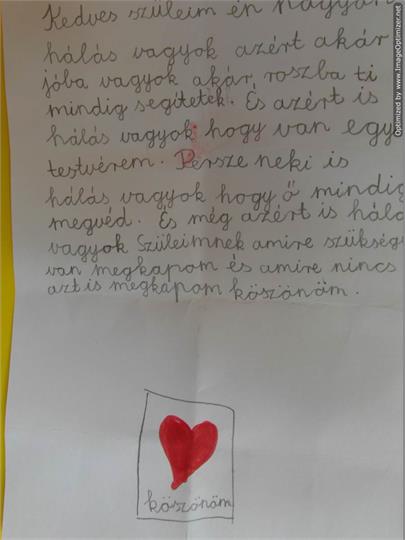 Kedves szüleim én nagyon
hálás vagyok azért akár
jóba vagyok akár roszba ti
mindig segítetek. És azért is
hálás vagyok hogy van egy
testvérem. Persze neki is
hálás vagyok hogy ő mindig
megvéd. És még azért is hálá
vagyok Szüleimnek amire szüksége
van megkapom és amire nincs
azt is megkapom köszönöm.
köszönöm
Optimized by www.ImageOptimizer.net